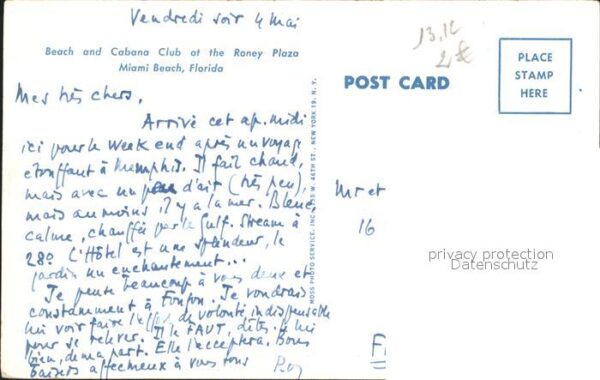 Vendredi soir 4 Mai
Beach and Cabana Club at the Roney Plaza
Miami Beach, Florida
Mes très chers,
Arrivé cet ap. midi
ici pour le week end après un voyage
etouffant à Memphis. Il fait chaud,
mais avec un peu d'air (très peu),
mais au moins il y a la mer. Bleue,
calme, chauffée par le Gulf. Stream à
28° L'Hôtel est une splendeur, le
jardin un enchantement...
Je pense beaucoup à vous deux et
constamment à Fonfon. Je voudrais
lui voir faire l'effort de volonté indispensable
pour se relever. Il le FAUT, dites-le lui
bien, de ma part. Elle l'acceptera. Bons
baisers affectueux à vous tous
13,12
2€
POST CARD
PLACE
STAMP
HERE
MOSS PHOTO SERVICE, INC. W. 46TH ST., NEW YORK 19, N. Y.
Mr et
16
privacy protection
Datenschutz
F